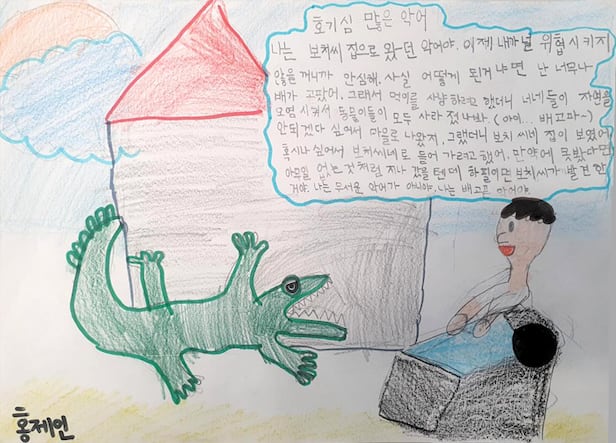 호기심 많은 악어
나는 보처씨 집으로 왔던 악어야. 이제 내가 널 위협 시키지
않을 꺼니까 안심해. 사실 어떻게 된거 냐면 난 너무나
배가 고팠어. 그래서 먹이를 사냥 하려고 했더니 너네들이 자연을
오염 시켜서 동물이들이 모두 사라 졌나봐. (아이... 배고파~)
안되겠다 싶어서 마을로 나왔지, 그랬더니 보처씨네 집이 보였어
혹시나 싶어서 보처씨네로 들어 가려고 했어. 만약에 못봤다면
아무일 없는 것처럼 지나 갔을 텐데 하필이면 보처씨가 발견 한
거야. 나는 무서운 악어가 아니야, 나는 배고픈 악어야
홍제인